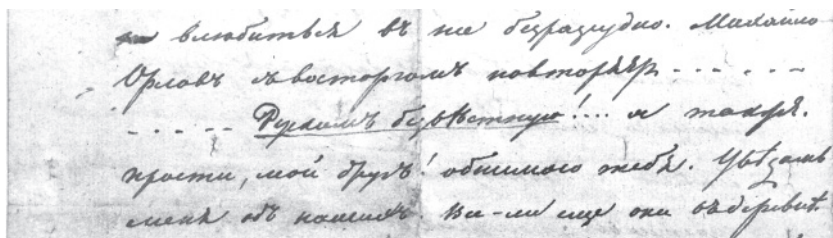 влюбиться въ нее безразсудно. Михайло
Орловъ съ восторгомъ повторяет - - - - - -
- - - - - Рускимъ безвѣстную!.... я также.
прости, мой другъ! обнимаю тебя. Увѣдомь
меня объ нашихъ. Все-ли еще они въ деревнѣ.